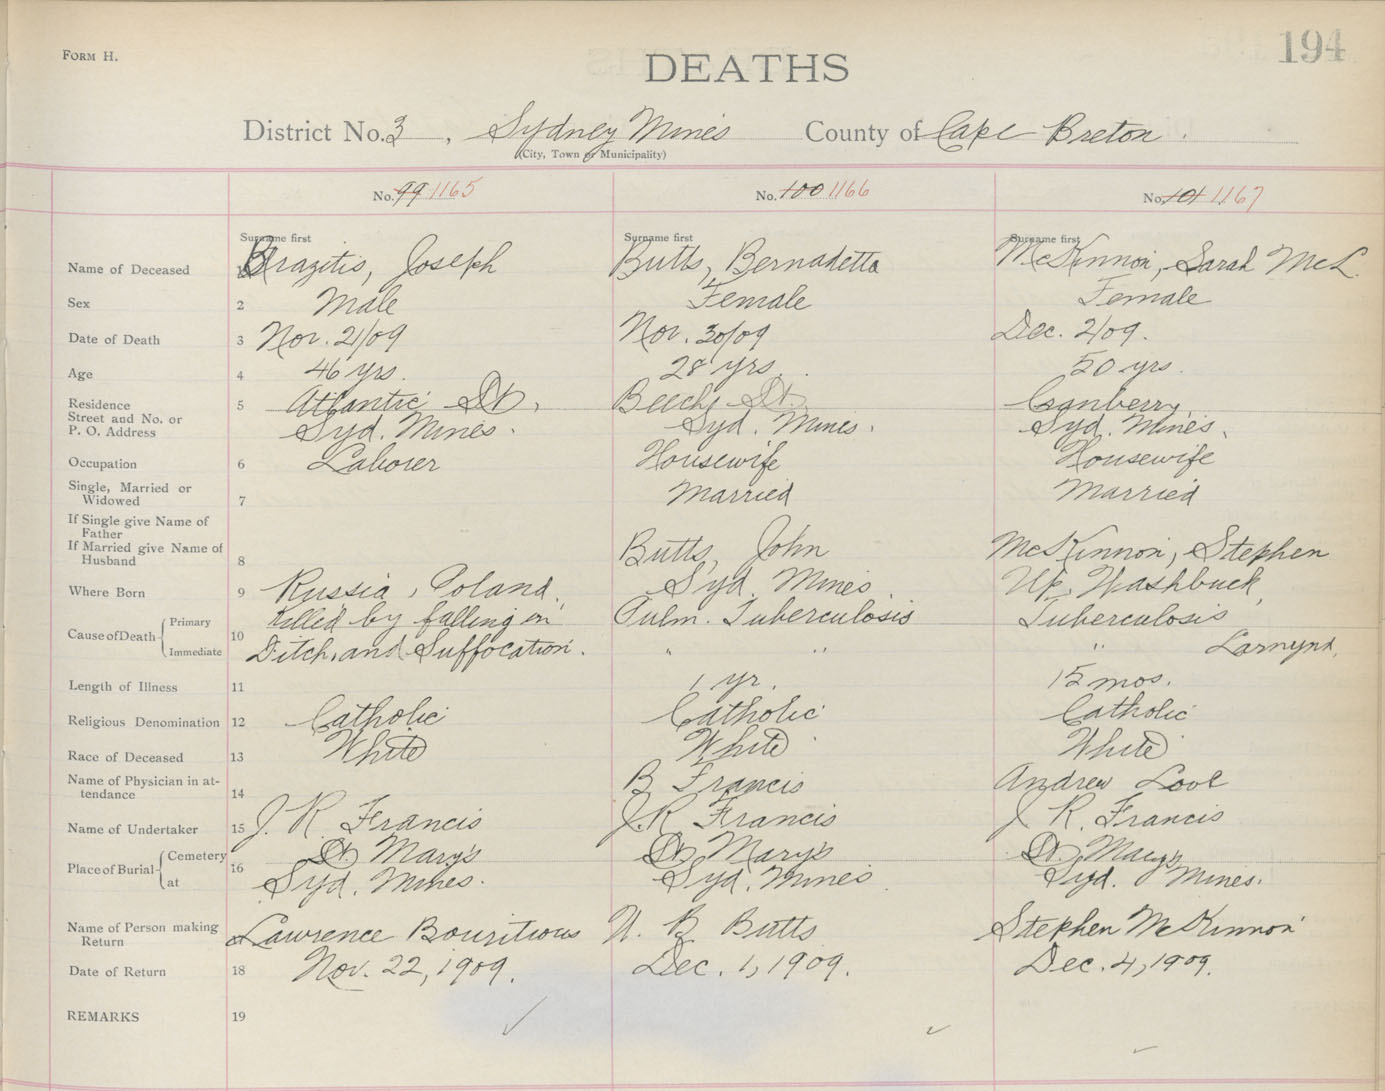 FORM H.
194
DEATHS
District No. 3, Sydney Mines County of Cape Breton.
(City, Town or Municipality)
No. 99 1165 No. 100 1166 No. 101 1167
Surname first Surname first Surname first
Name of Deceased 1 Brazitis, Joseph Butts, Bernadetta McKinnon, Sarah McL.
Sex 2 Male Female Female
Date of Death 3 Nov. 21/09 Nov. 30/09 Dec. 2/09.
Age 4 46 yrs. 28 yrs. 50 yrs.
Residence 5 Atlantic St. Beech St. Cranberry,
Street and No. or
P. O. Address Syd. Mines. Syd. Mines. Syd. Mines.
Occupation 6 Laborer Housewife Housewife
Single, Married or
Widowed 7 Married Married
If Single give Name of
Father
If Married give Name of
Husband 8 Butts, John McKinnon, Stephen
Where Born 9 Russia, Poland. Syd. Mines. Washbuck,
Cause of Death Primary 10 Killed by falling in Pulm. Tuberculosis Tuberculosis
Immediate Ditch, and Suffocation. " " "
Length of Illness 11 1 yr. 15 mos.
Religious Denomination 12 Catholic Catholic Catholic
Race of Deceased 13 White White White
Name of Physician in at-
tendance 14 B Francis Andrew Love
Name of Undertaker 15 J. R. Francis J. R. Francis J R. Francis
Place of Burial Cemetery 16 St. Mary's St. Mary's St. Mary's
at Syd. Mines. Syd. Mines. Syd. Mines.
Name of Person making
Return 17 Lawrence B. Butts Stephen McKinnon
Date of Return 18 Nov. 22, 1909. Dec. 1, 1909. Dec. 4, 1909.
REMARKS 19